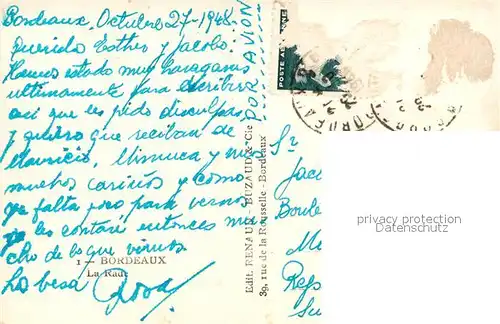 Bordeaux, Octubre 27-1948.
Querida Esther y Jacobo:
Hemos estado muy haraganas
ultimamente para escribir
asi que les pido disculpas
y quiero que reciban de
Mauricio, Mimuca y mios
muchos cariños y como
ya falta poco para vernos
les contaré entonces mu
cho de lo que vimos
Los besa Rosa
1 — BORDEAUX
La Rade
POR AVION
POSTE AERIENNE
BORDEAUX
Edit. RENAUD-BUZAUD & Cie
39, rue de la Rousselle - Bordeaux
Sr
Jac
Boule
Me
Rep
Su
privacy protection
Datenschutz